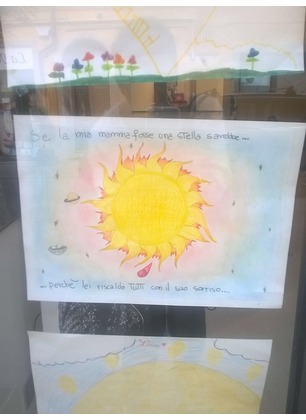 Se la mia mamma fosse una stella sarebbe...
...perchè lei riscalda tutti con il suo sorriso...